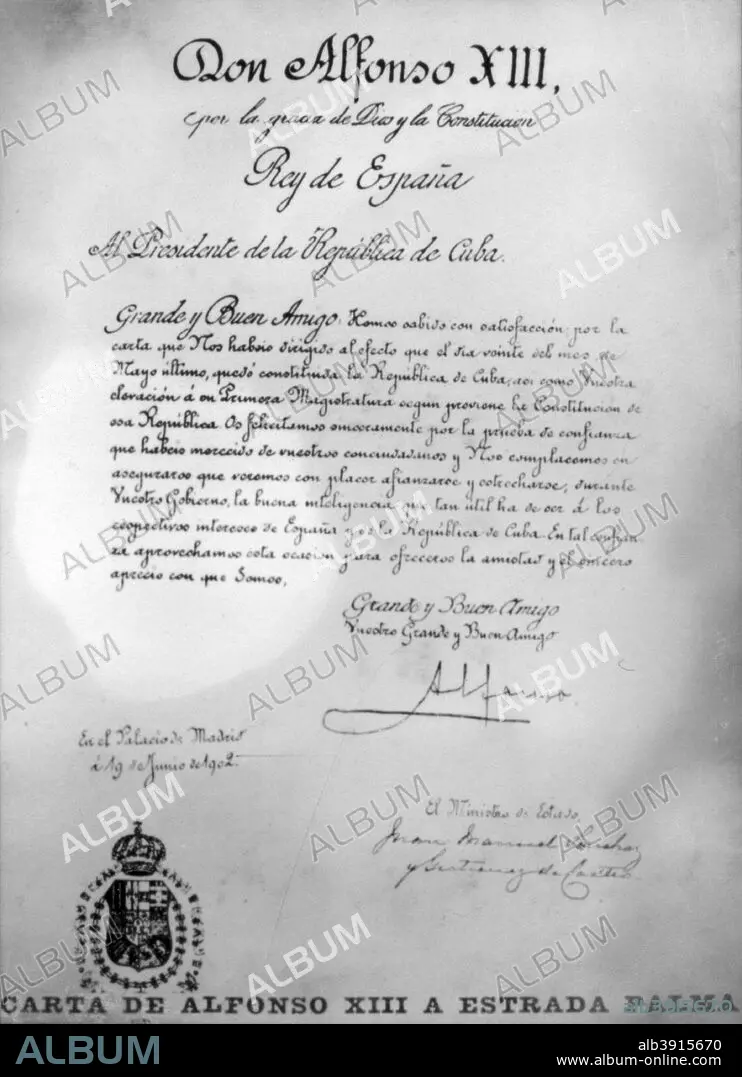 Don Alfonso XIII,
por la gracia de Dios y la Constitución
Rey de España
Al Presidente de la República de Cuba.
Grande y Buen Amigo: Hemos sabido con satisfacción por la
carta que Nos habeis dirigido al efecto que el dia veinte del mes de
Mayo último, quedó constituida la República de Cuba, asi como Vuestra
elevación á su Primera Magistratura segun previene la Constitucion de
esa República. Os felicitamos sinceramente por la prueba de confianza
que habeis merecido de vuestros conciudadanos y Nos complacemos en
aseguraros que veremos con placer afianzarse y estrecharse, durante
Vuestro Gobierno, la buena inteligencia que tan útil ha de ser á los
respectivos intereses de España y de la República de Cuba. En tal confian
za aprovechamos esta ocasion para ofreceros la amistad y el sincero
aprecio con que Somos,
Grande y Buen Amigo
Vuestro Grande y Buen Amigo
Alfonso
En el Palacio de Madrid
á 19 de Junio de 1902
El Ministro de Estado,
Juan Manuel Sánchez
y Gutierrez de Castro
CARTA DE ALFONSO XIII A ESTRADA PALMA
ab3915670
ALBUM
alb3915670
www.album-online.com